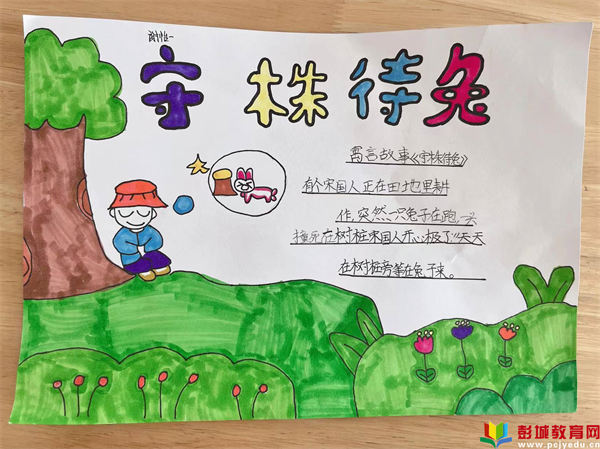 守株待兔
寓言故事《守株待兔》
有个宋国人正在田地里耕
作,突然一只兔子在跑,一头
撞死在树桩宋国人开心极了"天天
在树桩旁等在兔子来。
彭城教育网
www.pcjyedu.cn